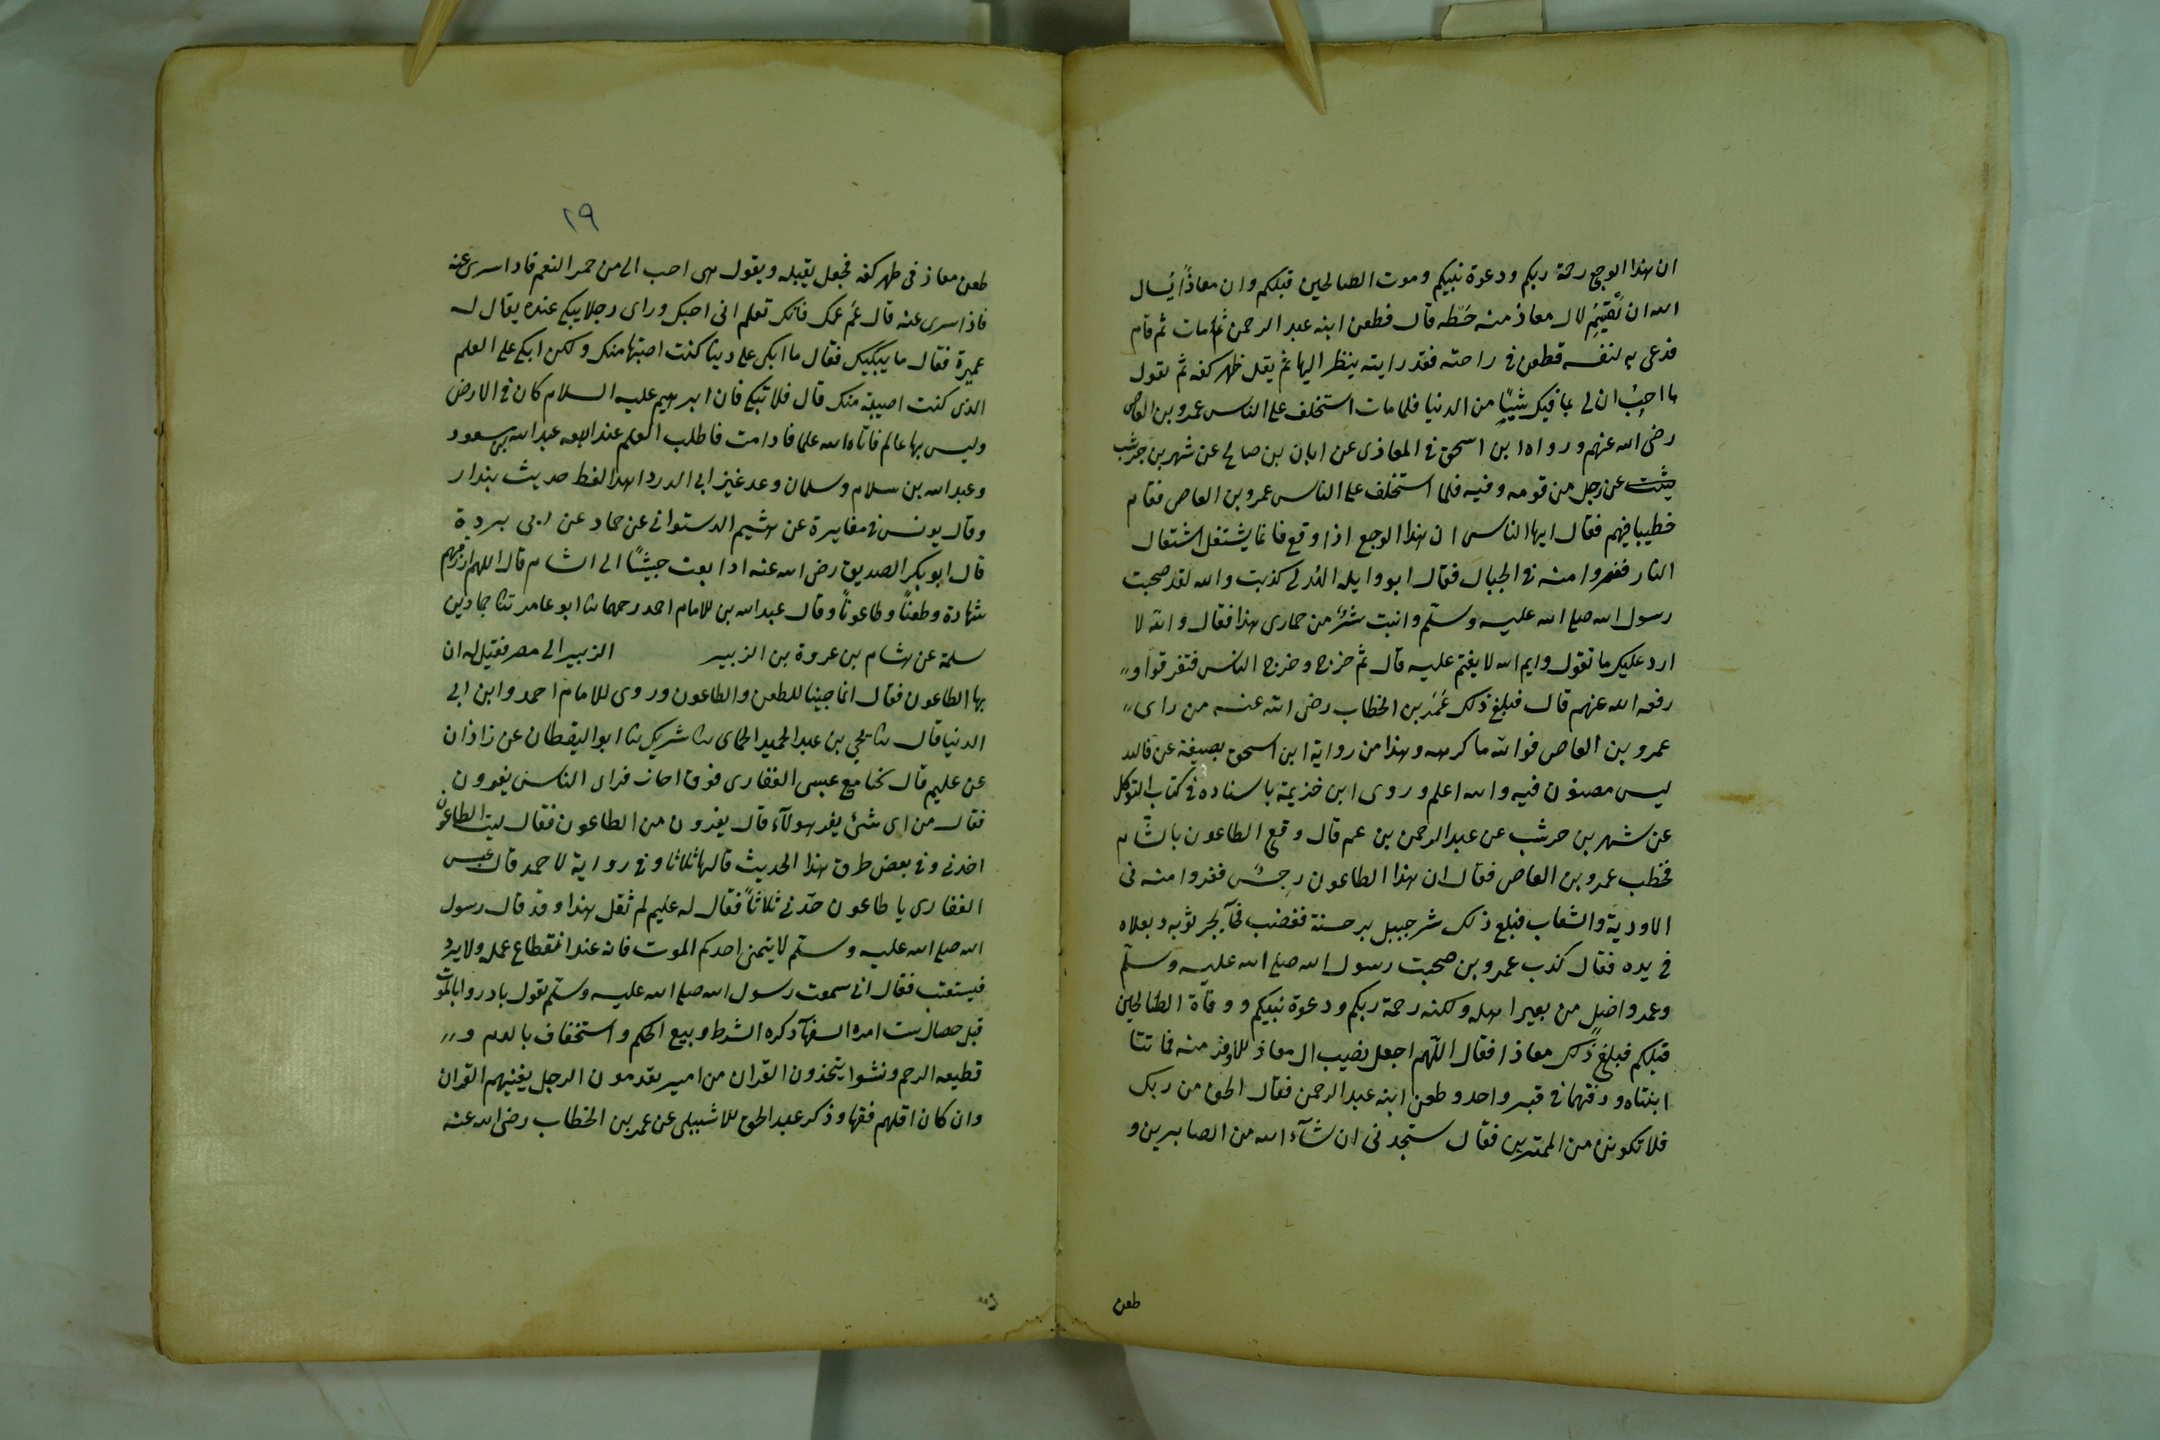 ان هذا الوجع رحمة ربكم ودعوة نبيكم وموت الصالحين قبلكم وان معاذاً يُسال
الله ان يُقيَم لال معاذ منه حَظه قال فطعن ابنه عبد الرحمن ثم مات ثم قام
فدعى به لنفسه فطعن في راحته فقد رايته ينظر اليها ثم يقبل ظهر كفه ثم يقول
ما احبُ ان لي بما فيك شيئًا من الدنيا فلما مات استخلف على الناس عمرو بن العاص
رضى الله عنهم ورواه ابن اسحق في المغازى عن ابان بن صالح عن شهر بن حوشب
عن رجل من قومه وفيه فلما استخلف على الناس عمرو بن العاص فقام
خطيبا فيهم فقال ايها الناس ان هذا الوجع اذا وقع فانما يشتغل اشتعال
النار ففروا منه في الجبال فقال ابو وايله الهذلى كذبت والله لقد صحبت
رسول الله صلى الله عليه وسلم وانت شرٌ من حمارى هذا فقال والله لا
ارد عليك ما تقول وايم الله لا يقيم عليه قال ثم خرج وخرج الناس فتفرقوا و
رفعه الله عنهم قال فبلغ ذلك عُمَر بن الخطاب رضى الله عنه من راى
عمرو بن العاص فوالله ما كرهه وهذا من رواية ابن اسحق بصيغة عن فالله
ليس مصنون فيه والله اعلم وروى ابن خذيمة باسناده في كتاب التوكل
عن شهر بن حوشب عن عبد الرحمن بن غم قال وقع الطاعون بالشام
فخطب عمرو بن العاص فقال ان هذا الطاعون رجسٌ ففروا منه في
الاودية والشعاب فبلغ ذلك شرحبيل بر حسنة فغضب فجآ يجر ثوبه ونعلاه
في يده فقال كذب عمرو بن صحبت رسول الله صلى الله عليه وسلم
وعمرو اضل من بعير اهله ولكنه رحمة ربكم ودعوة نبيكم ووفاة الصالحين
قبلكم فبلغ ذلك معاذا فقال اللهم اجعل نصيب ال معاذ الاوفر منه فماتتا
ابنتاه ودفنهما في قبر واحد وطعن ابنه عبد الرحمن فقال الحق من ربك
فلا تكونن من الممترين فقال ستجدنى ان شآء الله من الصابرين و
طعن
٢٩
طعن معاذ في ظهر كفه فجعل يقبله ويقول هى احب الى من حمر النعم فاذا سرى عنه
فاذا سرى عنه قال غُم غمك فانك تعلم انى احبك وراى رجلا يبكى عنده يقال له
عميرة فقال ما يبكيك فقال ما ابكى على دينا كنت اصبتها منك ولكن ابكى على العلم
الذى كنت اصيبه منك قال فلا تبكى فان ابرهيم عليه السلام كان في الارض
وليس بها عالم فاتاه الله علما فاذا مت فاطلب العلم عند اربعه عبد الله بن مسعود
وعبد الله بن سلام وسلمان وعد غيز ابى الدردا هذا لفظ حديث بندار
وقال يونس في مغايرة عن هشيم الدستوانى عن حماد عن ابى بردة
قال ابو بكر الصديق رضى الله عنه اذا بعث جيشًا الى الشام قال اللهم ارزقهم
شهادة وطعنًا وطاعونًا وقال عبد الله بن الامام احمد رحهما ثنا ابو عامر ثنا حماد بن
سلمة عن هشام بن عروة بن الزبير الزبير الى مصر فقيل له ان
بها الطاعون فقال انما جينا للطعن والطاعون وروى الامام احمد وابن ابى
الدنيا قال ثنا يحيى بن عبد الحميد الحمامى ثنا شريك ثنا ابو اليقظان عن زاذان
عن عليم قال كنا مع عبسى الغفارى فوق اجاز فراى الناس يفرون
فقال من اى شئ يفر هولآء قال يفرون من الطاعون فقال ليت الطاعون
اخذنى وفي بعض طرق هذا الحديث قالها ثلاثا وفي رواية لاحمد قال عبس
الغفارى يا طاعون خذنى ثلاثاً فقال له عليم لم تقل هذا وقد قال رسول
الله صلى الله عليه وسلم لا يتمنى احدكم الموت فانه عند انقطاع عمله ولا يرد
فيستعتب فقال انى سمعت رسول الله صلى الله عليه وسلم يقول بادروا بالموت
قبل خصال ست امره السفهآ وكره الشرط وبيع الحكم واستخفاف بالدم و
قطيعه الرحم ونشوا يتخذون القران من امير يقدمون الرجل يغنيهم القران
وان كان اقلهم فقها وذكر عبد الحق الاشبيلى عن عمر بن الخطاب رضى الله عنه